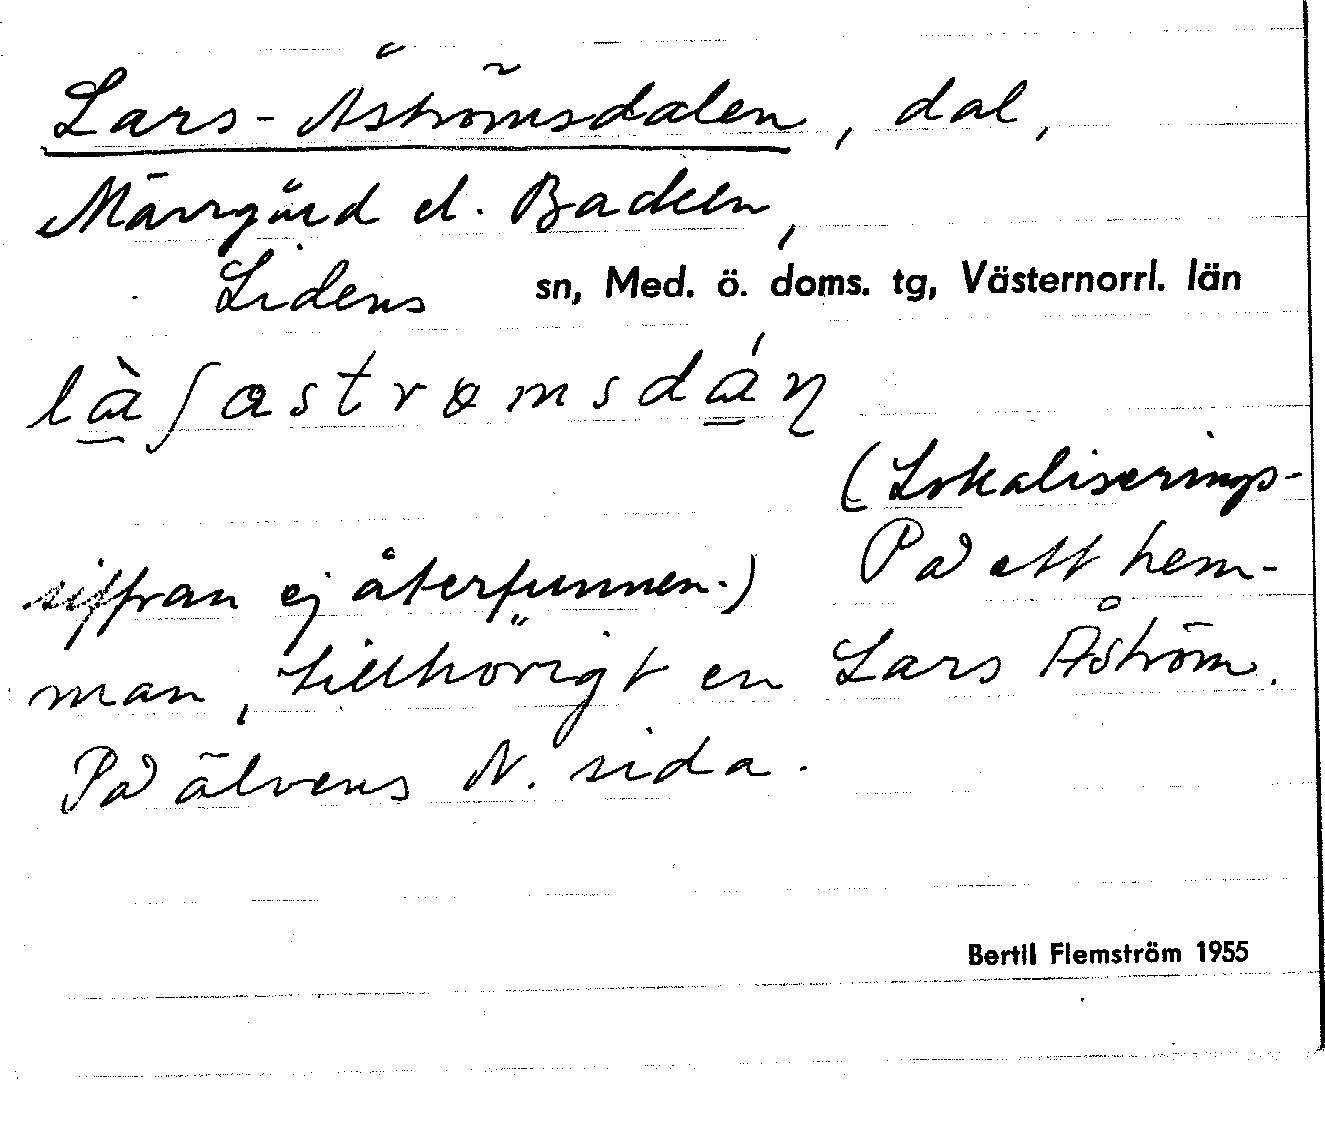 Lars-Åströmsdalen, dal,
Märrgård el. Backen,
Lidens sn, Med. ö. doms. tg, Västernorrl. län
(Lokaliserings-
siffran ej återfunnen.) På ett hem-
man, tillhörigt en Lars Åström.
På älvens N. sida.
Bertil Flemström 1955